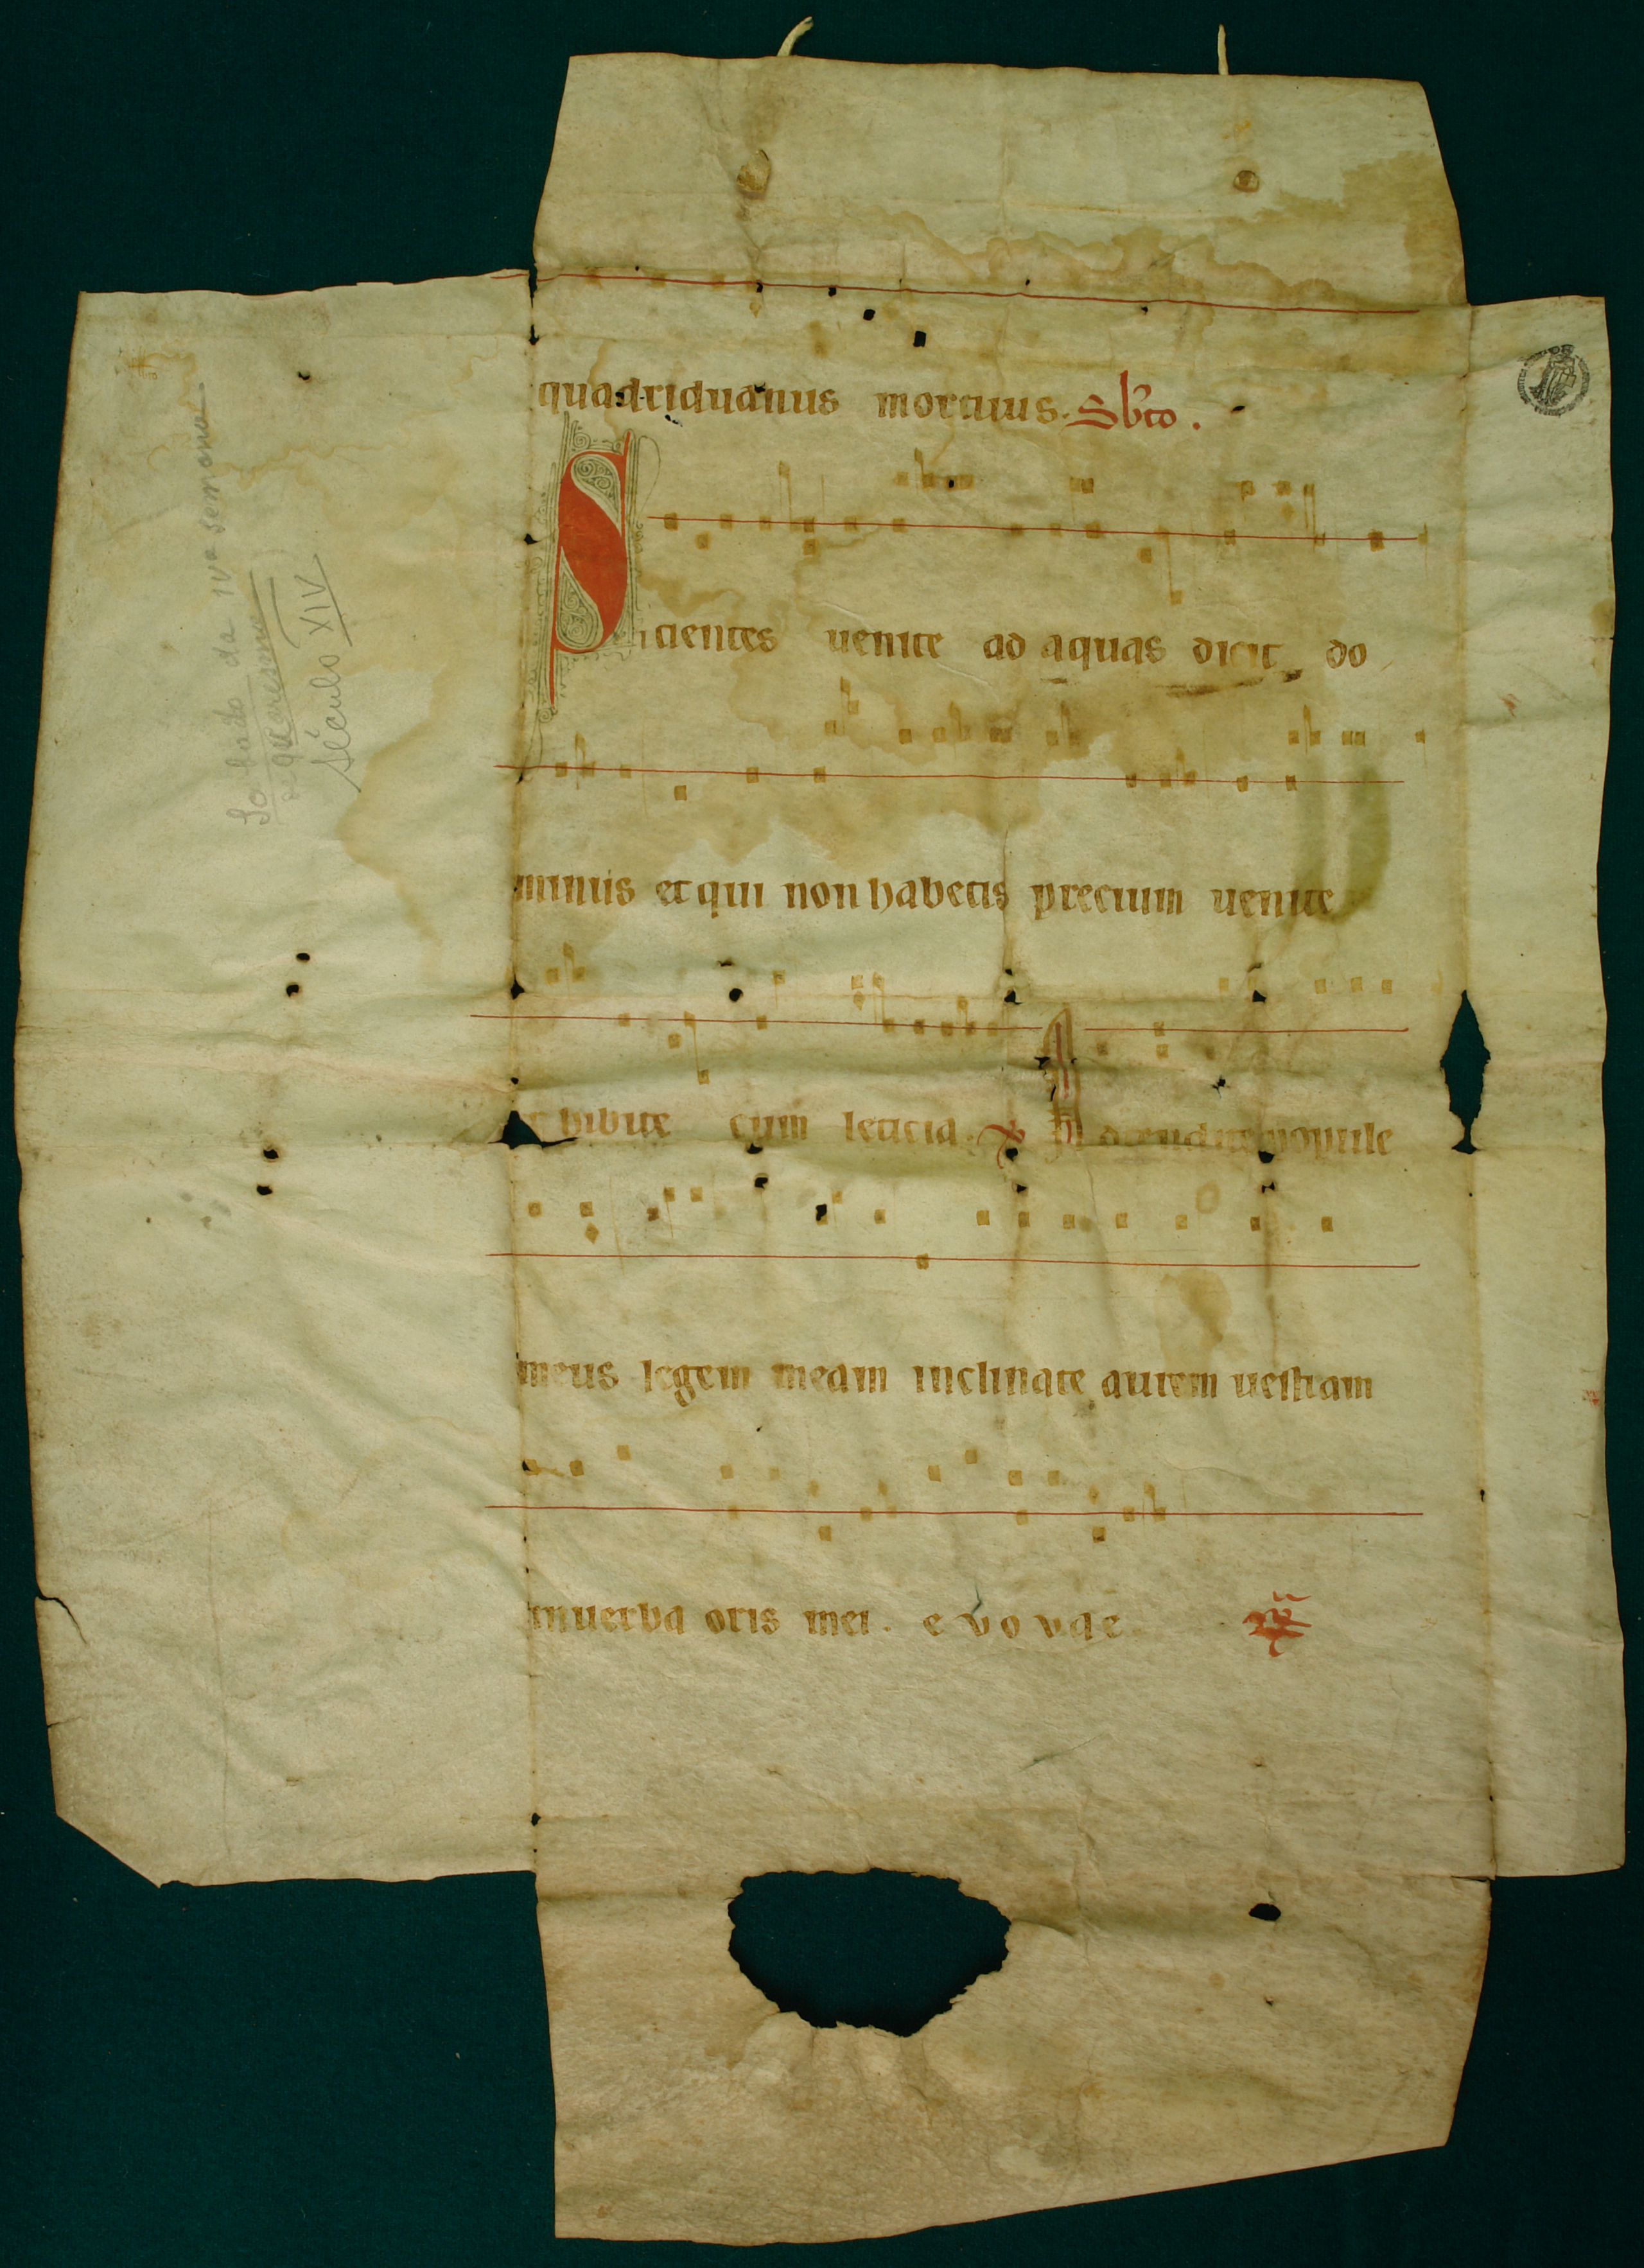 quadriduanus mortuus. Sbto.
Sicientes uenite ad aquas dicit do
minus et qui non habetis precium uenite
bibite cum leticia. Ps Adtendite popule
meus legem meam inclinate aurem uestram
in uerba oris mei. e v o v a e
Sabado da IVa semana
da quaresma
Século XIV